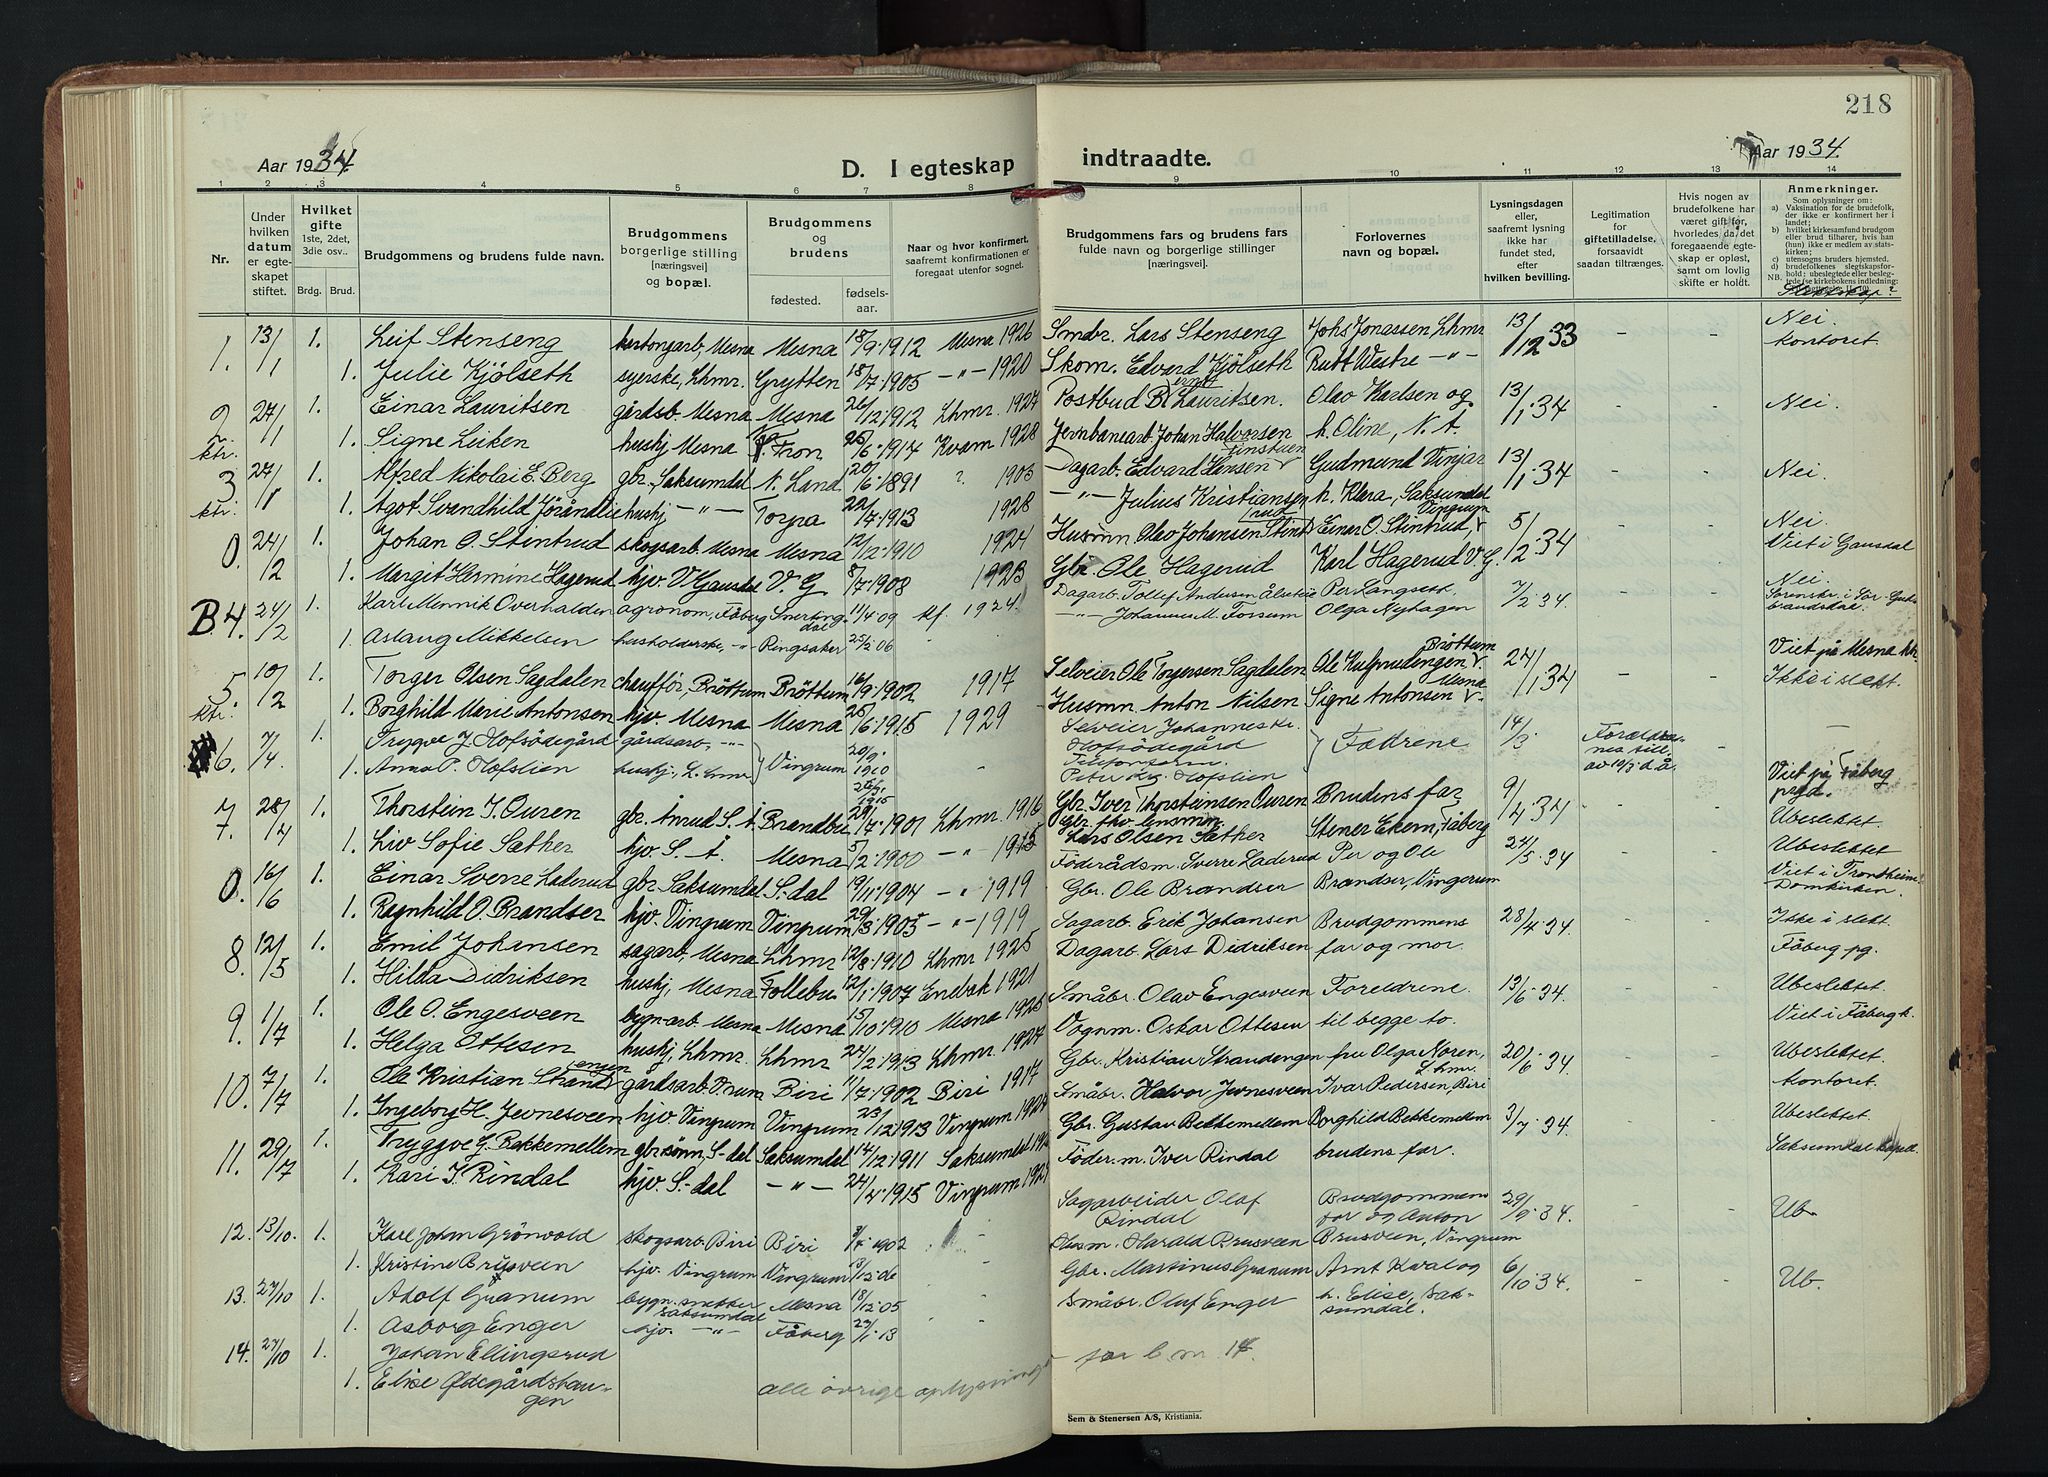 218
Aar 1934.
D. I egteskap
indtraadte.
Aar 1934.
1 2 3 4 5 6 7 8 9 10 11 12 13 14
Nr.
Under hvilken datum er egteskapet stiftet.
Hvilket gifte
1ste, 2det, 3die osv..
Brdg. Brud.
Brudgommens og brudens fulde navn.
Brudgommens borgerlige stilling [næringsvei] og bopæl.
Brudgommens og brudens
fødested.
fødselsaar.
Naar og hvor konfirmert, saafremt konfirmationen er foregaat utenfor sognet.
Brudgommens fars og brudens fars fulde navn og borgerlige stillinger [næringsvei].
Forlovernes navn og bopæl.
Lysningsdagen eller, saafremt lysning ikke har fundet sted, efter hvilken bevilling.
Legitimation for giftetilladelse, forsaavidt saadan tiltrænges.
Hvis nogen av brudefolkene har været gift før, hvorledes da det foregaaende egteskap er opløst, samt om lovlig skifte er holdt.
Anmerkninger.
Som oplysning om:
a) Vaksination for de brudefolk, der ikke er konfirmert her i landet;
b) hvilket kirkesamfund brudgom eller brud tilhører, hvis han (hun) ikke er medlem av statskirken;
c) utensogns bruders hjemsted.
d) brudefolkenes slegtskapsforhold: ubeslegtede eller beslegtede
1. 13/1 1. Leif Stenseng kartongarb, Mesna Mesna 18/9.1912 Mesna 1926 Smbr. Lars Stenseng Johs Jonassen Lhmr 13/12 33 - - Nei.
1. Julie Kjölseth syerske, Lhmr. Grytten 18/7.1905 -"- 1920 Skom. Edvard Kjölseth Rutt Westre -"- kontoret.
2 ktr. 27/1 1. Einar Lauritsen gårdsb. Mesna Mesna 26/12.1912 Lhmr. 1927 Postbud Bernt Lauritsen. Olav Karlsen og 13/1.34 - - Nei.
1. Signe Leiken huskj Mesna Fron 25/6.1914 Kvam 1928 Jernbanearb. Johan Halvorsen h. Oline, N. A.
3 ktr. 27/1 1. Alfred Nikolai E. Berg gbr. Saksumdal N. Land 20/6.1891 ? 1905 Dagarb. Edvard Hansen Gudmund Vinjar 13/1.34 - - Nei.
1. Agot Svandhild Jörandlie huskj -"- Torpa 22/7.1913 1928 -"- Julius Kristiansen h. Klara, Saksumdal
0 24/2 1. Johan O. Stintrud skogsarb. Mesna Mesna 12/12.1910 1924 Husmn Olav Johansen Stintrud Einar O. Stintrud, Vingrum 5/2.34 - - Nei.
1. Margit Hermine Hagerud hjv. V. Gausdal V. G 8/7.1908 1923 Gbr. Ole Hagerud Karl Hagerud V. G. Viet i Gausdal
B. 4. 24/2 1. Karl Mennik Overhalden agronom, Fåberg Snertingdal 11/4.09 kf. 1924. Dagarb. Tollef Andersen Per Langseth 7/2.34. - - Nei.
1. Aslaug Mikkelsen husholderske, -"- Ringsaker 25/2.06 -"- Johannes M. Fossum Olga Nyhagen
5. ktr. 10/2 1. Torger Olsen Sagdalen chauffør, Bröttum Bröttum 16/9.1902 1917 Selveier Ole Torgersen Sagdalen Ole Bröttum 24/1.34 - - Viet på Mesna ktr.
1. Borghild Marie Antonsen hjv. Mesna Mesna 25/6.1915 1929 Husmn. Anton Nilsen Signe Antonsen Mesna Ikke i slekt.
6. 7/4. 1. Trygve J. Hofsödegård gårdsarb, -"- Vingrum 20/9 1910 Selveier Johannes Kr. Hofsödegård Fædrene 14/3 Forældrenes till. av 10/3 d.å. - -
1. Anna P. Hofslien huskj., L.hmr 26/3 1915 - Peter Hofslien Viet på Fåberg prgd.
7. 28/4 1. Thorstein I. Ouren gbr. Ånrud S. Å. Brandbu 29/7.1901 Lhmr. 1916 Gbr. Iver Thorsteinsen Ouren Brudens far, 9/4.34 - - Ubeslektet.
1. Liv Sofie Sæther hjv. S. Å. Mesna 5/2.1900 -"- 1915 Lars Olsen Sæther Stener Ekern, Fåberg
0. 16/6 1. Einar Sverre Laderud gbr. Saksumdal. S.-dal 19/11.1904 -"- 1919 Föderådsm. Sverre Laderud Per og Ole 24/5.34 - - Ubeslektet
1. Ragnhild O. Brandser hjv. Vingrum Vingrum 29/3.1905 -"- 1919 Gbr. Ole Brandser Brandser, Vingerum Viet i Trontheim Domkirken.
8. 12/5 1. Emil Johansen sagarb, Mesna Lhmr 12/8.1910 Lhmr. 1925 Sagarb. Erik Johansen Brudgommens 28/4.34. - - Ikke i slekt.
1. Hilda Didriksen huskj, Mesna Follebu 12/1.1907 Enebak 1921 Dagarb. Lars Didriksen far og mor. Fåberg pg.
9. 1/7 1. Ole O. Engesveen bygn-arb. Mesna Mesna 15/10.1910 Mesna 1925 Småbr. Olav Engesveen Foreldrene 13/6.34. - - Ubeslektet.
1. Helga Ottesen huskj, Lhmr. Lhmr 24/2.1913 Lhmr. 1927 Vognm. Oskar Ottesen til begge to. Viet i Fåberg k.
10. 7/7 1. Ole Kristian Strandengen gårdsarb. V.rum Biri 11/7.1902 Biri 1917 Gbr. Kristian Strandengen fru Olga Noren, Lhmr. 20/6.34. - - Ubeslektet.
1. Ingeborg H. Jevnesveen hjv. Vingrum Vingrum 23/12.1913 Vingrum Småbr. Halvor Jevnesveen Ivar Pedersen, Biri kontoret.
11. 29/7 1. Tryggve G. Bakkemellem gbrsönn, S-dal Saksumdal 14/12.1911 Saksumdal Gbr. Gustav Bekkemellem Borghild Bekkemellem 3/7.34. - - Ubeslektet.
1. Kari I. Rindal hjv. S.-dal -"- 24/4.1915 Vingrum Föder. m. Iver Rindal brudens far. Saksumdal
12. 13/10. 1. Karl Johan Grönvold skogsarb. Biri Biri 3/7.1902 - Sagarbeider Olaf Rindal Brudgommens far og Anton 29/9.34. - - Ub.
1. Kristine Brusveen hjv. Vingrum Vingrum 13/12.06 - Harald Brusveen Brusveen, Vingrum
13. 27/10 1. Adolf Granum bygn. snekker Saksumdal Mesna 18/12.05 - Gbr. Martinus Granum Arnt Kval og 6/10.34. - - Ub.
1. Asborg Enger hjv. -"- Fåberg 23/1.13 - Småbr. Olaf Enger h. Elise, Saksumdal.
14. 27/10 1. Johan Ellingsrud
1. Elise Ødegårdshaugen alle övrige oplysninger - for l. nr. 14.
Sem & Stenersen A/S, Kristiania.